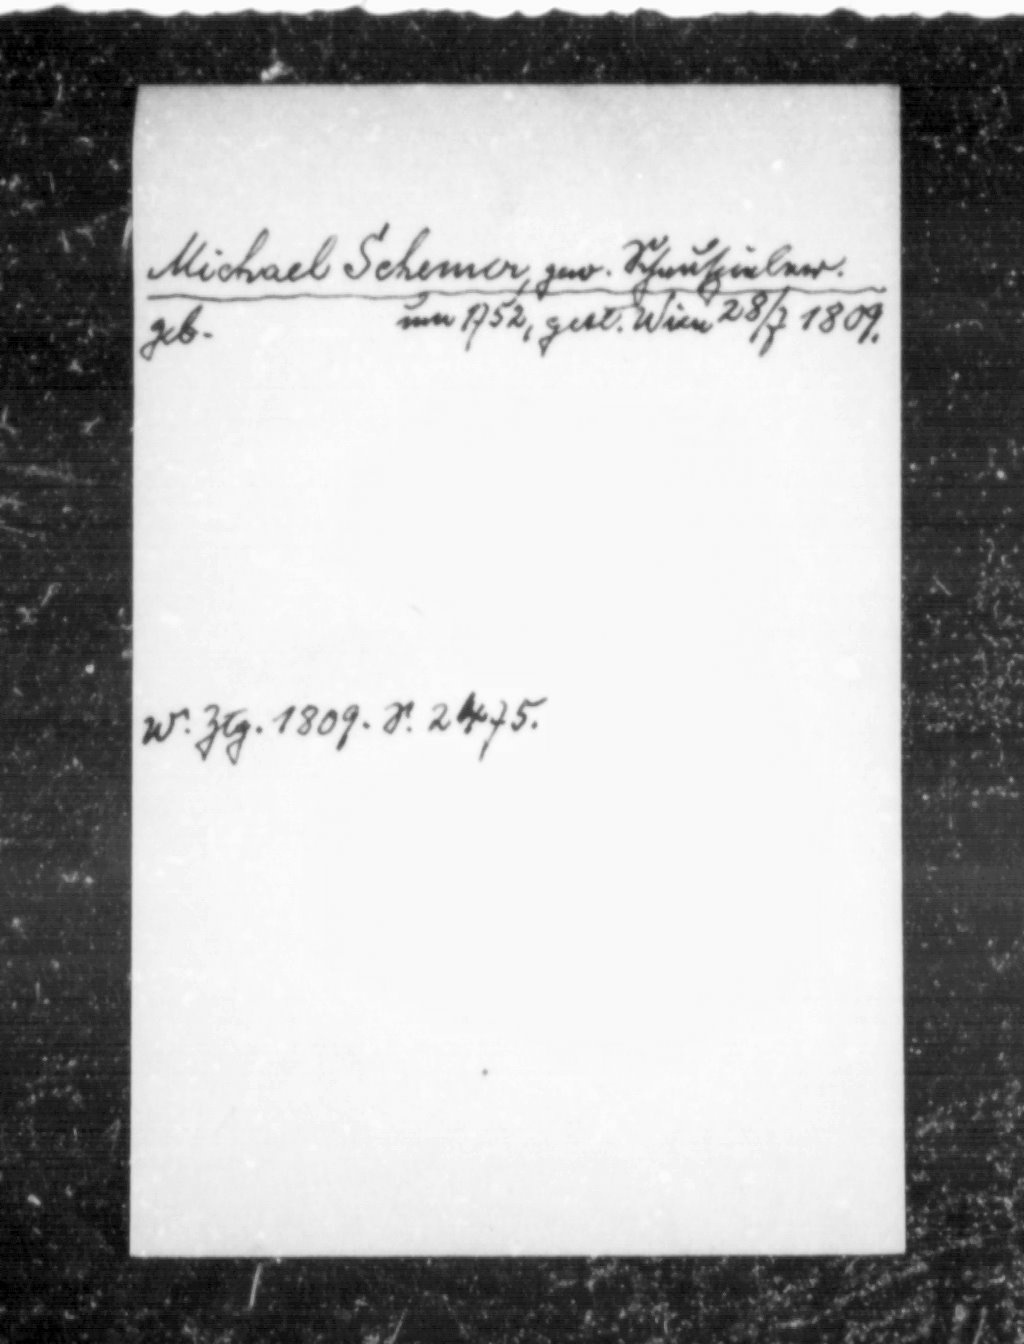 Michael Schemer, gew. Schauspieler.
geb. um 1752, gest. Wien 28/7 1809.
W. Ztg. 1809. S. 2475.